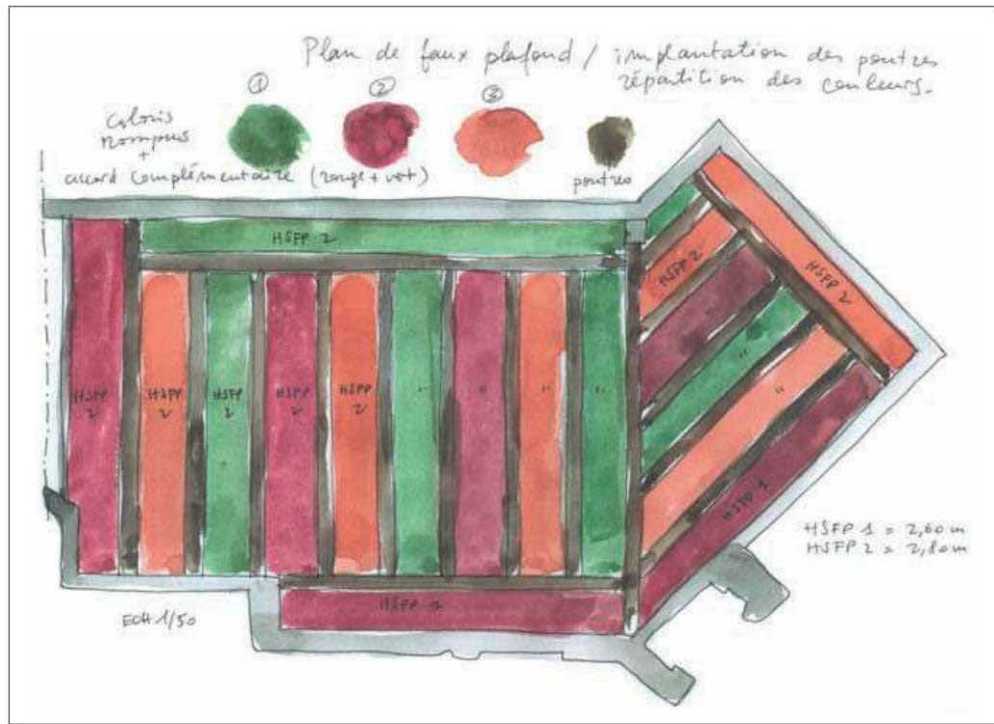 Plan de faux plafond / implantation des poutres
répartition des couleurs.
① ② ③
Coloris
rompus
+
accord complémentaire (rouge + vert)
poutres
HSFP 2
HSFP 2
HSFP 2
HSFP
2
HSFP
2
HSFP
2
HSFP
2
HSFP
2
"
"
"
"
"
"
HSFP 1
HSFP 1 = 2,60 m
HSFP 2 = 2,80 m
ECH 1/50